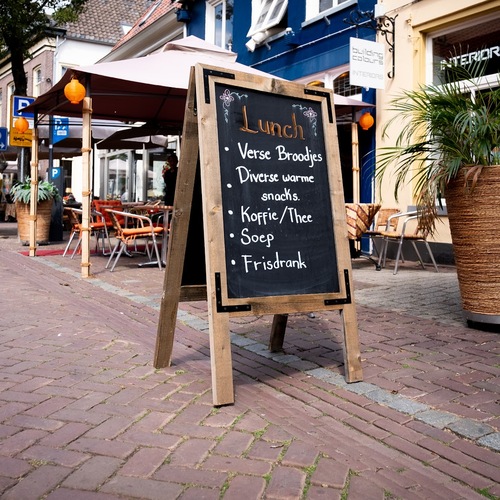 building
colours
INTERIORS
INTERIO
P
P
Lunch
• Verse Broodjes
• Diverse warme
snacks.
• Koffie/Thee
• Soep
• Frisdrank